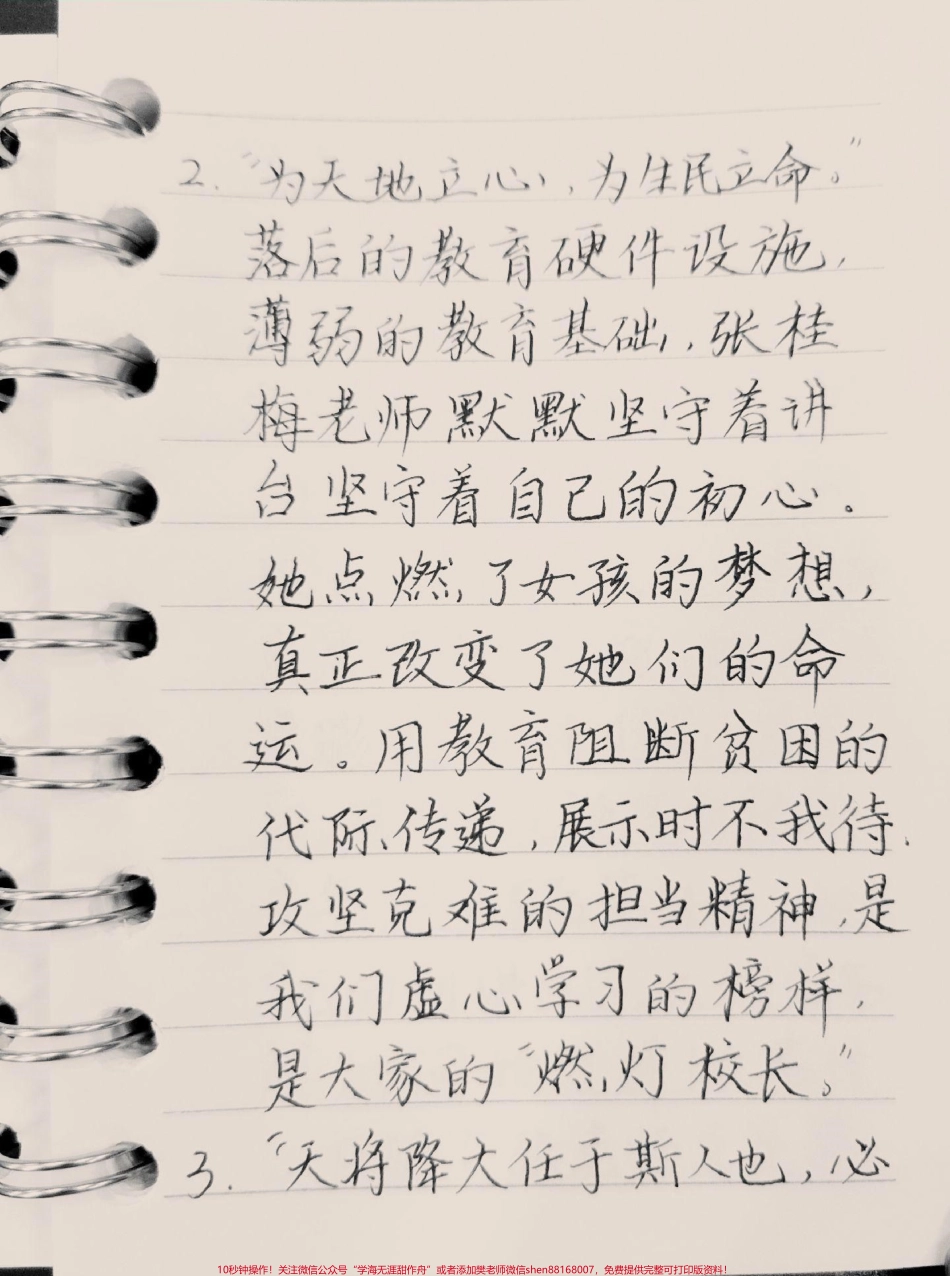 2. “为天地立心，为生民立命。”
落后的教育硬件设施，
薄弱的教育基础，张桂
梅老师默默坚守着讲
台坚守着自己的初心。
她点燃了女孩的梦想，
真正改变了她们的命
运。用教育阻断贫困的
代际传递，展示时不我待、
攻坚克难的担当精神，是
我们虚心学习的榜样，
是大家的“燃灯校长。”
3. “天将降大任于斯人也，必
10秒钟操作！关注微信公众号“学海无涯甜作舟”或者添加樊老师微信shen88168007，免费提供完整可打印版资料！